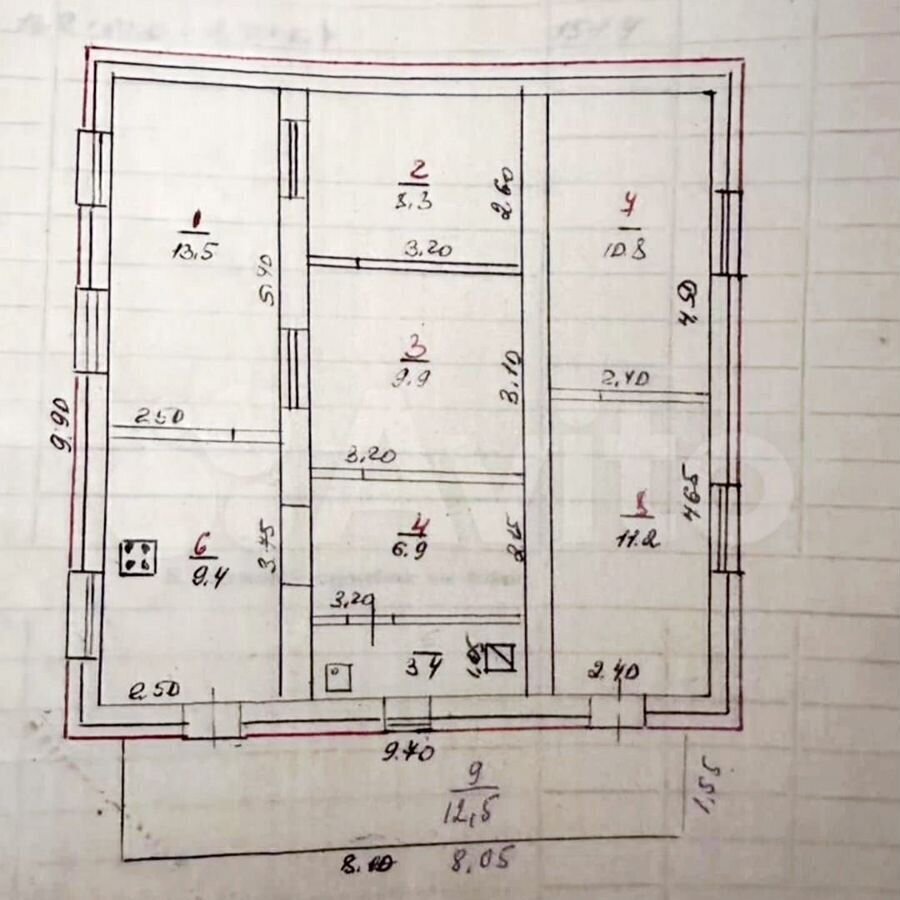 1
13.5
5.40
2
8.3
2.60
3.20
7
10.8
4.50
3
9.9
3.10
2.40
9.90
2.50
3.20
Avito
6
9.4
3.45
4
6.9
2.15
8
11.2
4.65
3.20
3.4
1.05
2.50
2.40
9.40
9
12,5
1,55
8.10
8,05